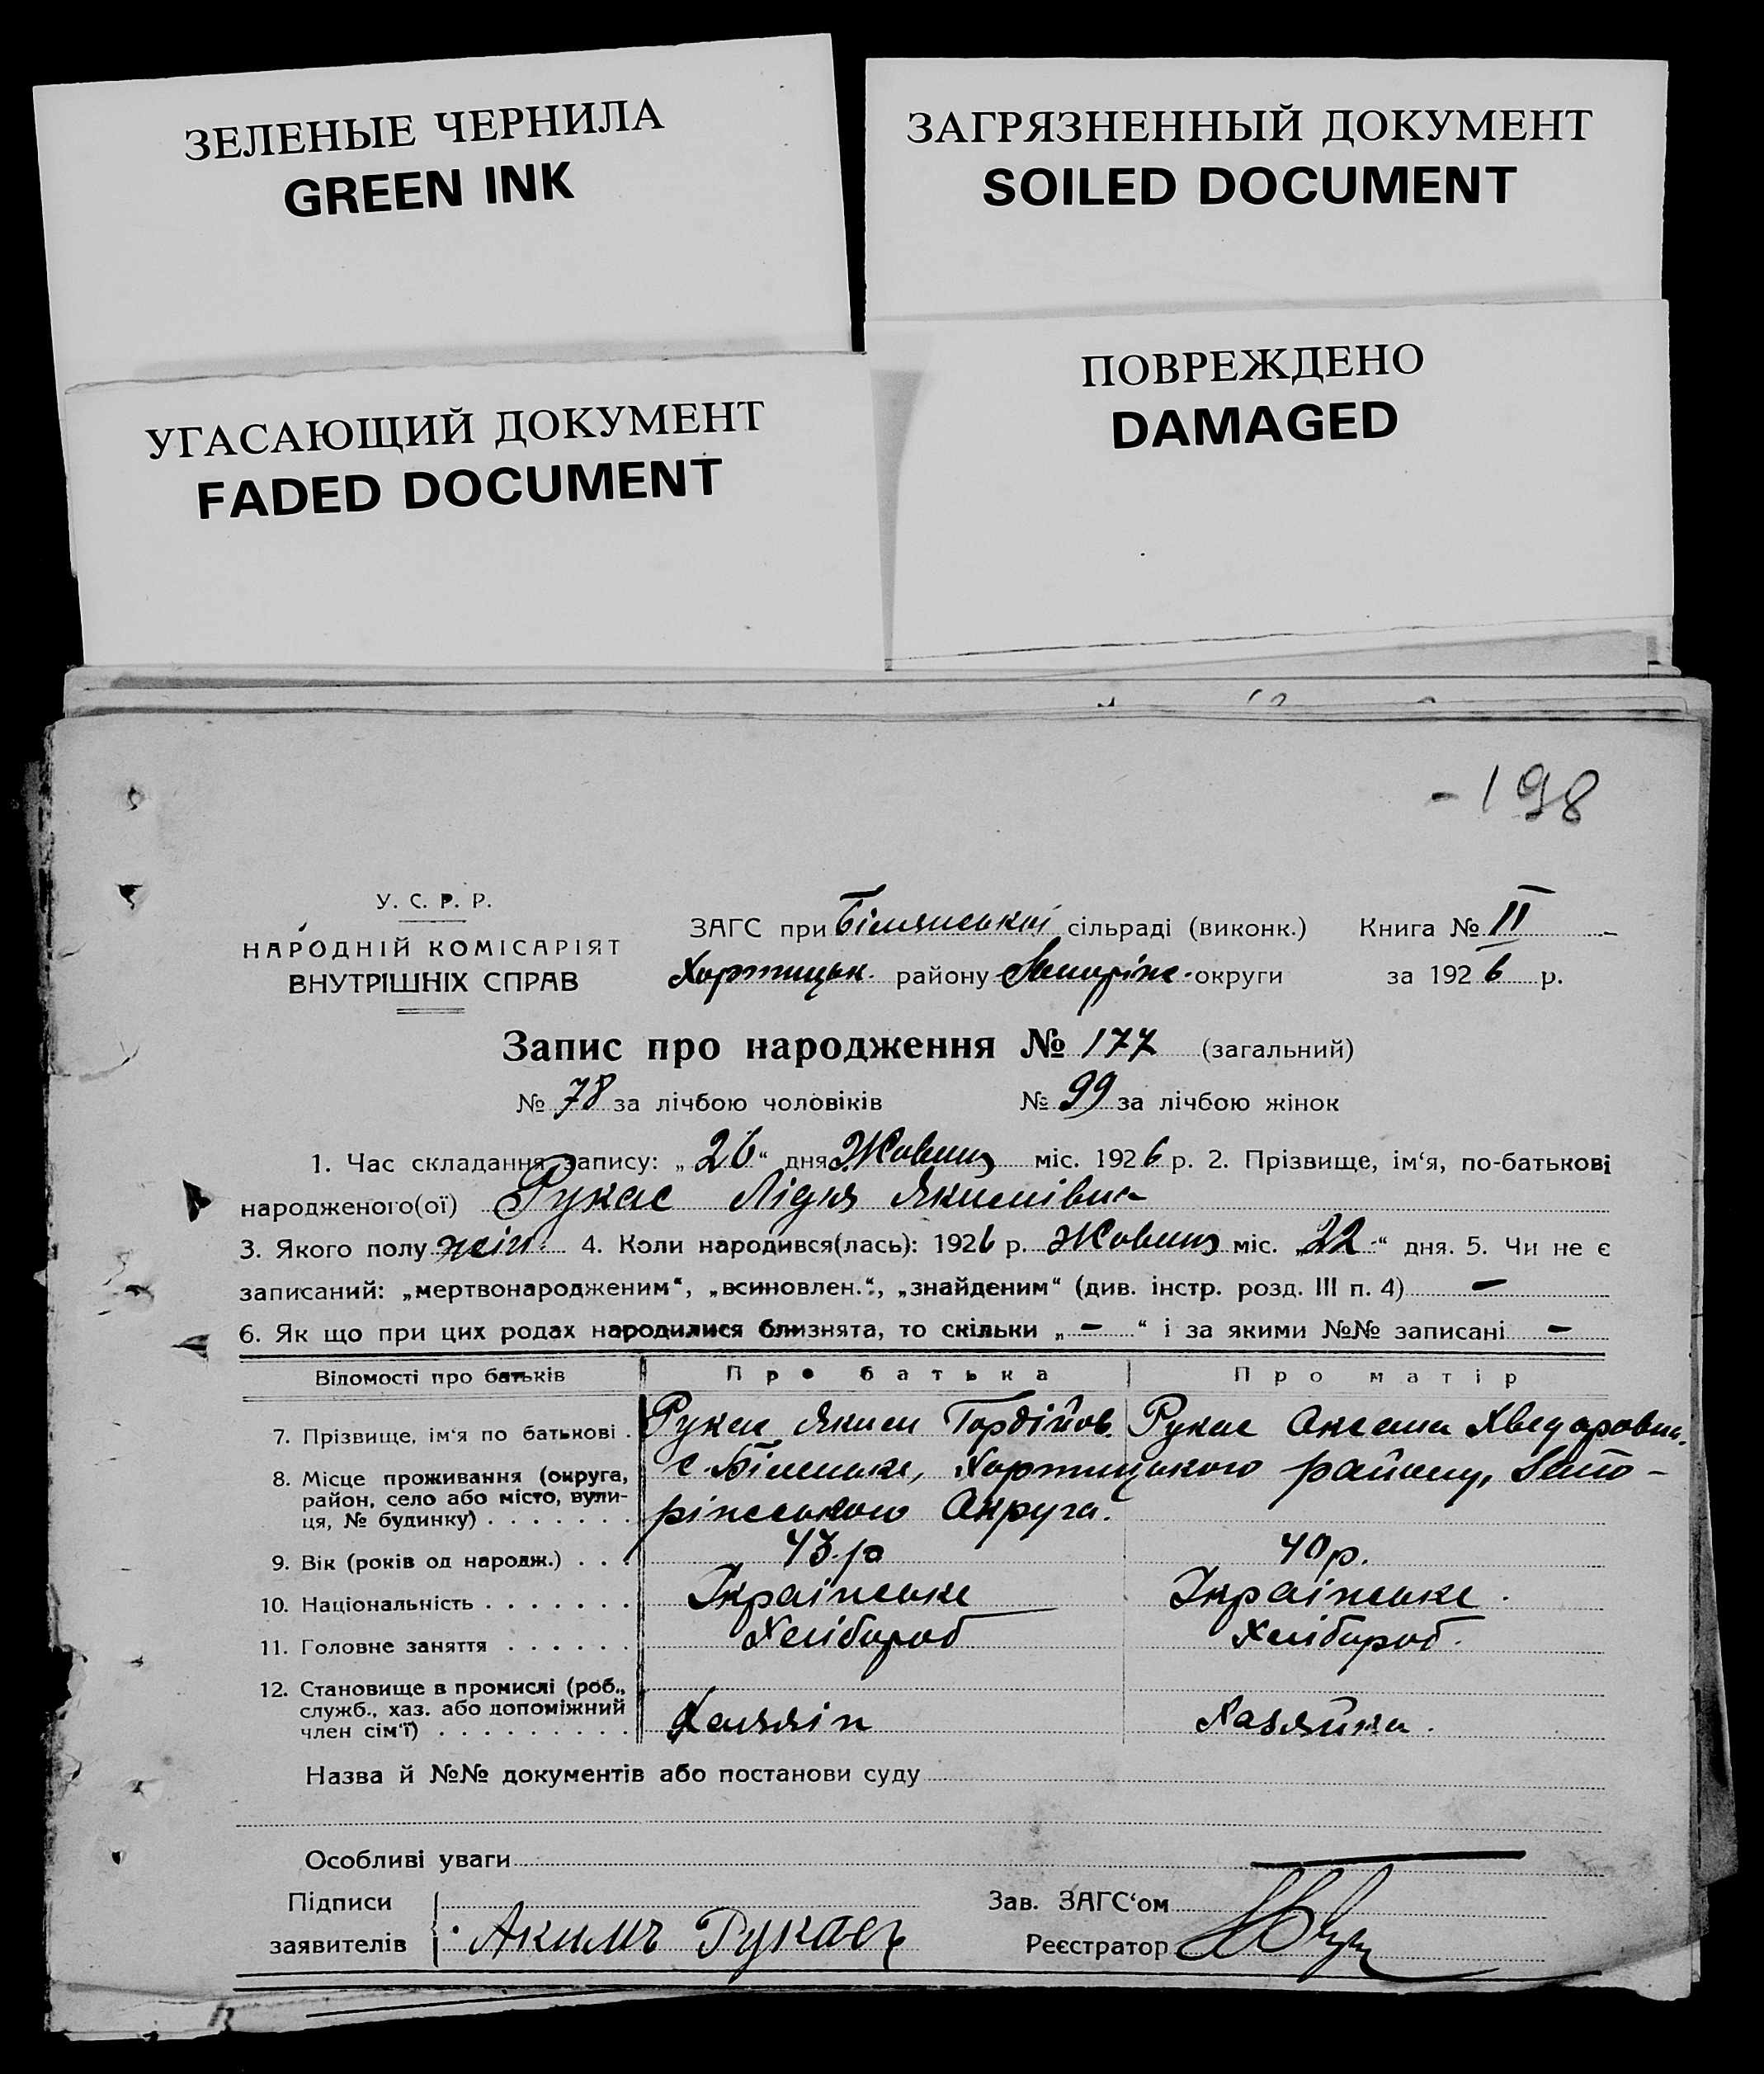 ЗЕЛЕНЫЕ ЧЕРНИЛА
GREEN INK
ЗАГРЯЗНЕННЫЙ ДОКУМЕНТ
SOILED DOCUMENT
УГАСАЮЩИЙ ДОКУМЕНТ
FADED DOCUMENT
ПОВРЕЖДЕНО
DAMAGED
- 198
У. С. Р. Р.
НАРОДНІЙ КОМІСАРІЯТ
ВНУТРІШНІХ СПРАВ
ЗАГС при Біленській сільраді (виконк.) Книга № II
Хортицьк. району Запоріж. округи за 1926 р.
Запис про народження № 177 (загальний)
№ 78 за лічбою чоловіків № 99 за лічбою жінок
1. Час складання запису: „26“ дня Жовтня міс. 1926 р. 2. Прізвище, ім‘я, по-батькові
народженого(ої) Рукас Лідия Якимівна
3. Якого полу жін. 4. Коли народився(лась): 1926 р. Жовтня міс. „22“ дня. 5. Чи не є
записаний: „мертвонародженим“, „всиновлен.“, „знайденим“ (див. інстр. розд. III п. 4) —
6. Як що при цих родах народилися близнята, то скільки „ — “ і за якими №№ записані —
Відомості про батьків Про батька Про матір
7. Прізвище, ім‘я по батькові . Рукас Яким Гордійов. Рукас Оксана Хведоровна.
8. Місце проживання (округа, район, село або місто, вулиця, № будинку) . . . . . . . с. Біленьке, Хортицького району, Запо-
ріжського Округа.
9. Вік (років од народж.) . . . 43 р. 40 р.
10. Національність . . . . . . . Українське Українське.
11. Головне заняття . . . . . . Хлібороб Хлібороб.
12. Становище в промислі (роб., служб., хаз. або допоміжний член сім‘ї) . . . . . . . . . Хазяїн Хазяйка.
Назва й №№ документів або постанови суду
Особливі уваги
Підписи
заявителів Акимъ Рукасъ
Зав. ЗАГС‘ом
Реєстратор